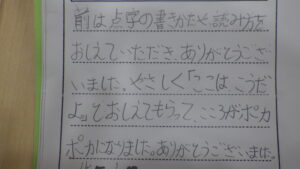 前は点字の書きかたや、読み方
おしえていただき、ありがとうござ
いました。やさしく「ここは こうだ
よ」とおしえてもらって、こころがポカ
ポカになりました。ありがとうございました。